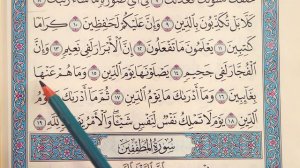 فِىٓ أَىِّ صُورَةٍ مَّا شَآءَ رَكَّبَكَ ٨
كَلَّا بَلْ تُكَذِّبُونَ بِٱلدِّينِ ٩ وَإِنَّ عَلَيْكُمْ لَحَٰفِظِينَ ١٠ كِرَامًا
كَٰتِبِينَ ١١ يَعْلَمُونَ مَا تَفْعَلُونَ ١٢ إِنَّ ٱلْأَبْرَارَ لَفِى نَعِيمٍ ١٣ وَإِنَّ
ٱلْفُجَّارَ لَفِى جَحِيمٍ ١٤ يَصْلَوْنَهَا يَوْمَ ٱلدِّينِ ١٥ وَمَا هُمْ عَنْهَا
بِغَآئِبِينَ ١٦ وَمَآ أَدْرَىٰكَ مَا يَوْمُ ٱلدِّينِ ١٧ ثُمَّ مَآ أَدْرَىٰكَ مَا يَوْمُ
ٱلدِّينِ ١٨ يَوْمَ لَا تَمْلِكُ نَفْسٌ لِّنَفْسٍ شَيْـًٔا وَٱلْأَمْرُ يَوْمَئِذٍ لِّلَّهِ ١٩
سُورَةُ المُطَفِّفِينَ